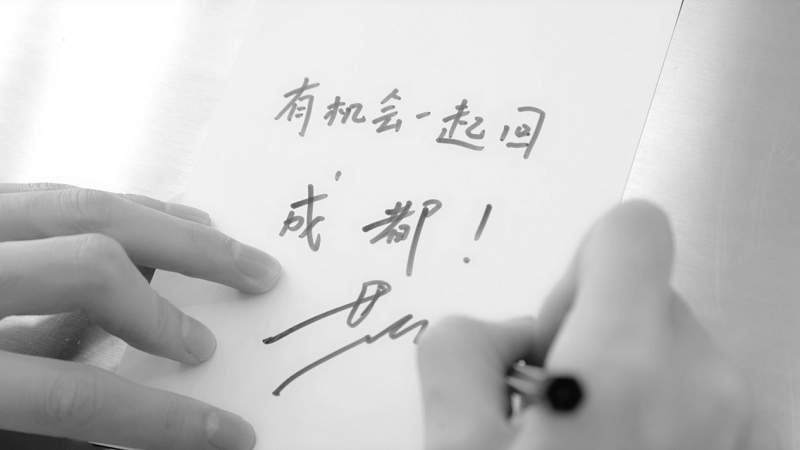 有机会一起回
成都！